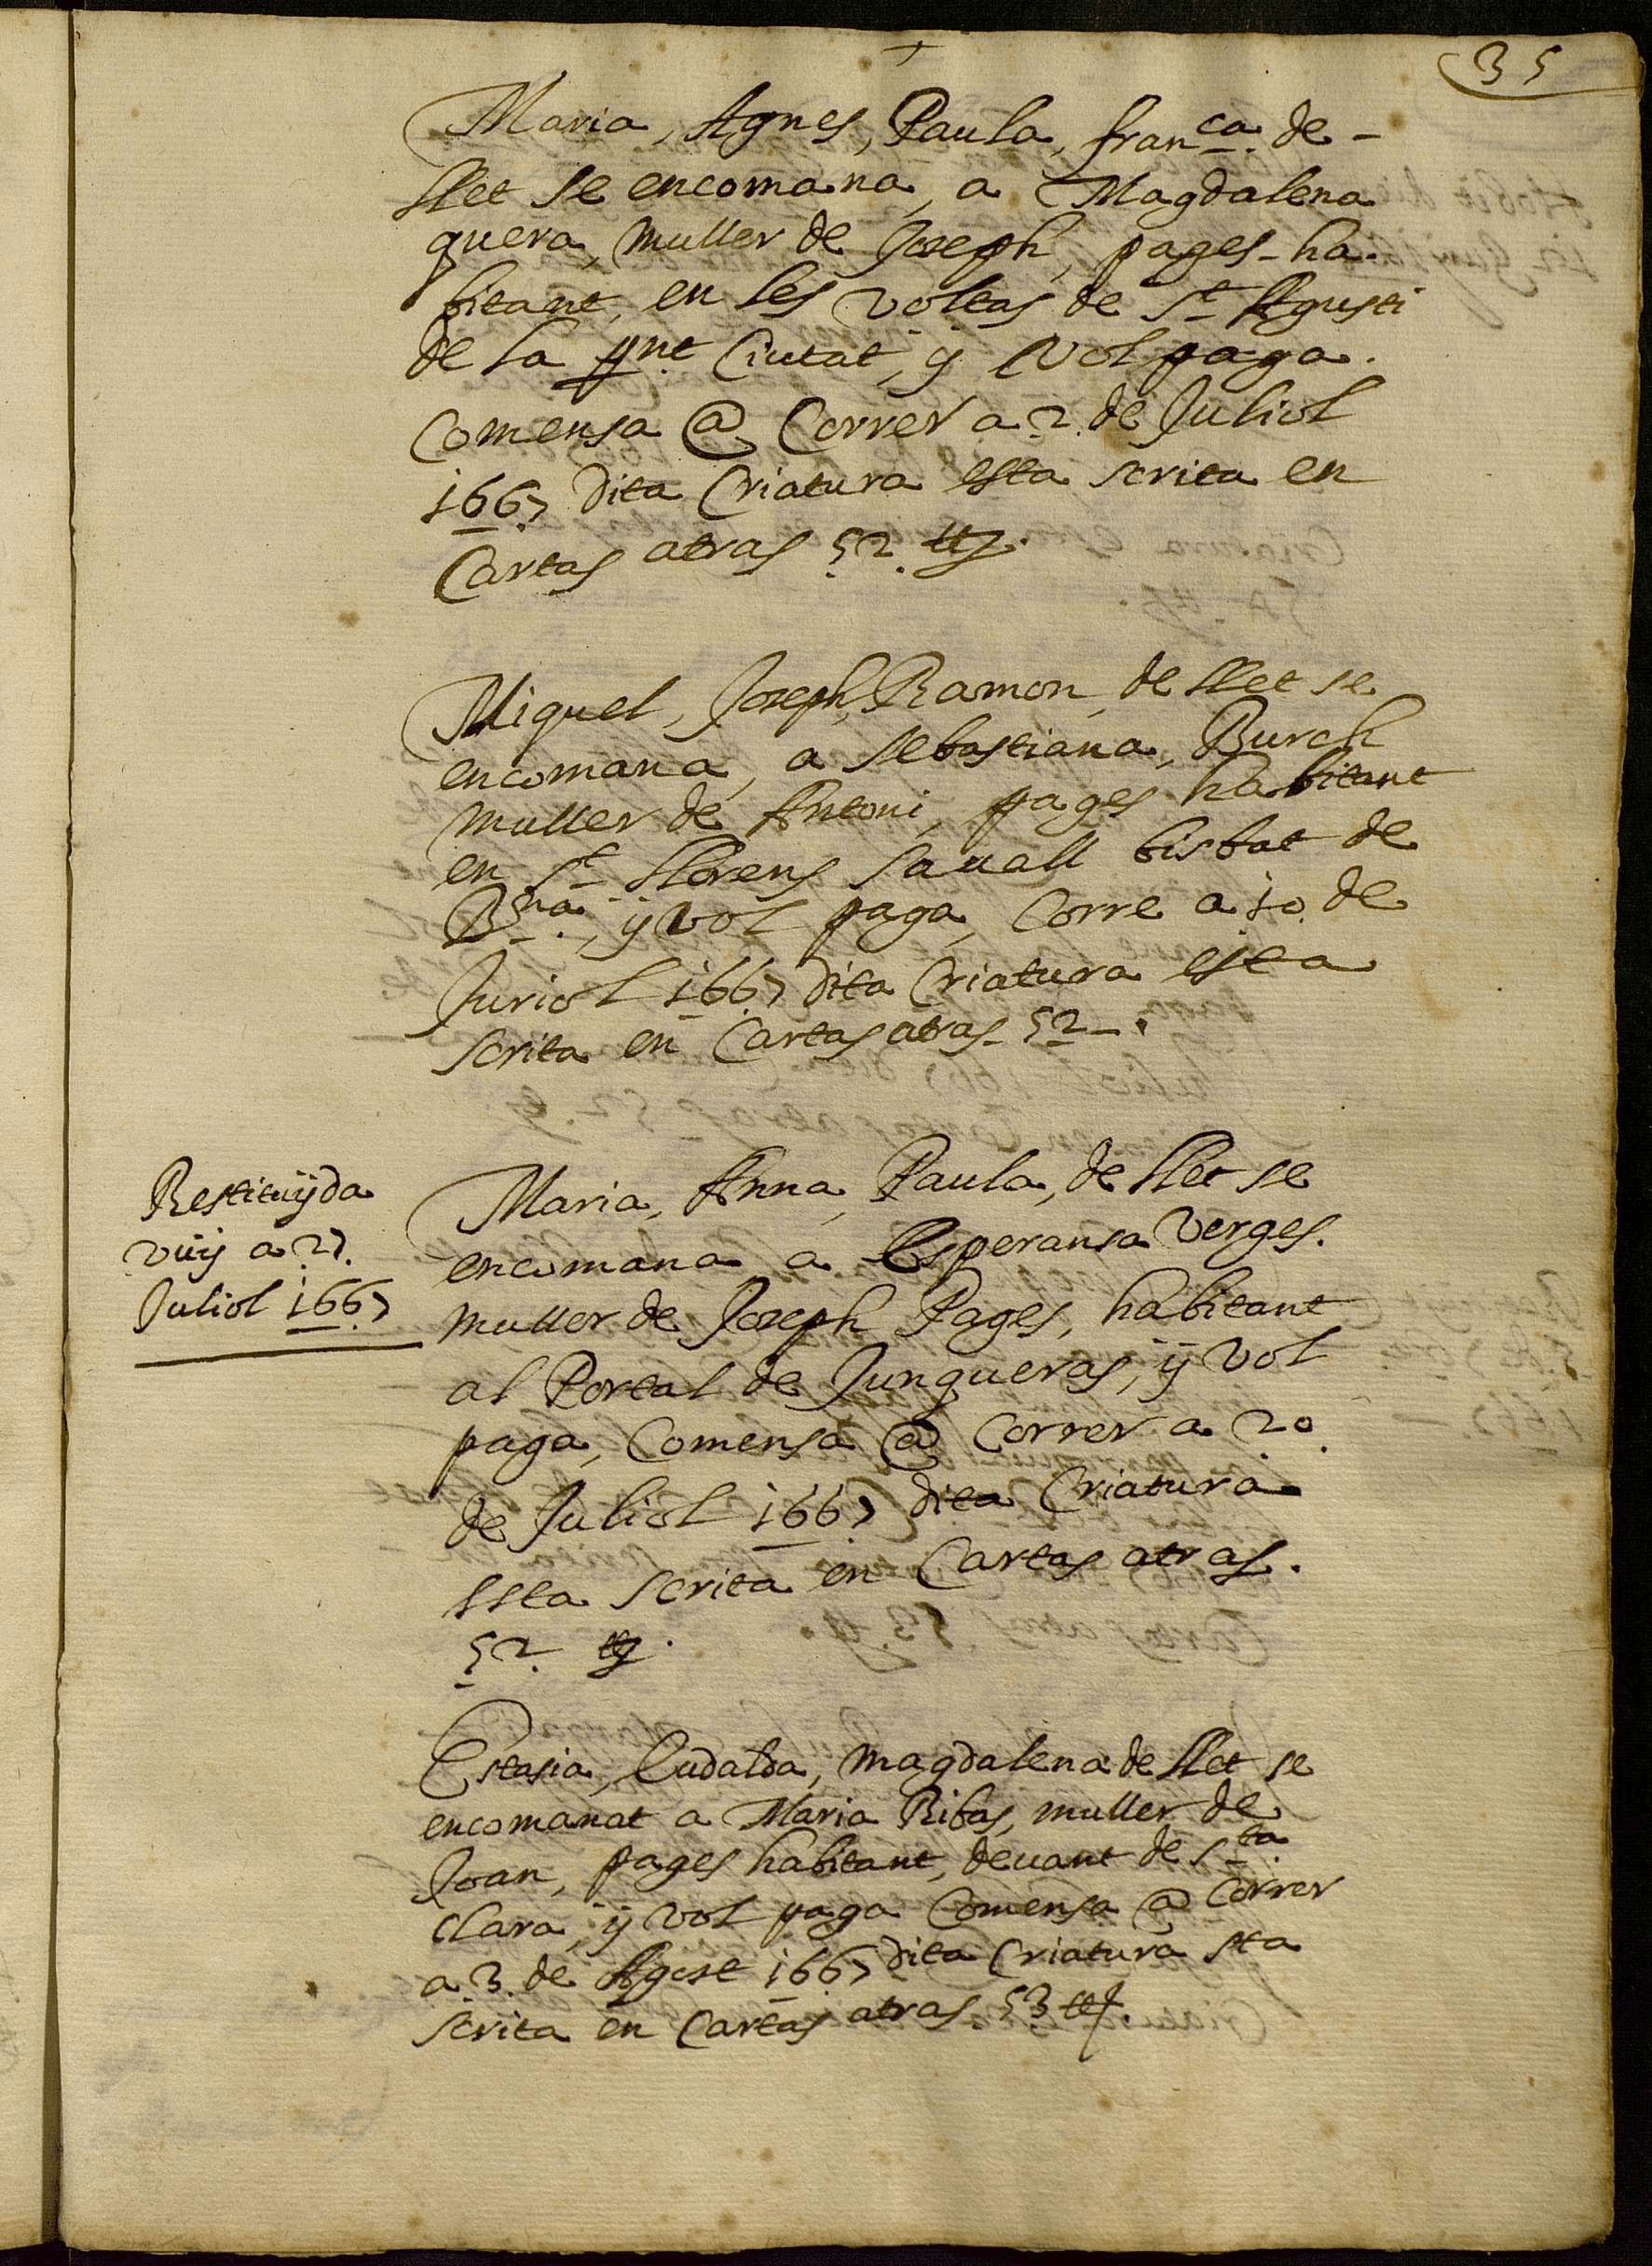 35
Maria, Agnes, Paula, fran^ca. de -
llet se encomana, a Magdalena
quera, muller de Joseph, pages - ha-
bitant, en les voltas de S^t Agusti
de la pnt Ciutat, y vol paga.
Comensa @ Correr a 2. de Juliol
1667 dita Criatura esta scrita en
Cartas atras 52.
Miquel, Joseph, Ramon, de llet se
encomana, a Sebastiana, Burch
muller de Antoni, pages habitant
en S^t Llorens Sauall bisbat de
B^na., y vol paga, Corre a 10. de
Juriol 1667 dita Criatura esta
scrita en Cartas atras - 52 - .
Restituÿda
vuÿ a 27.
Juliol 1667
Maria, Anna, Paula, de llet se
encomana a Esperansa Verges.
muller de Joseph Pages, habitant
al Portal de Junqueras, ÿ vol
paga, Comensa @ Correr a 20.
de Juliol 1667 dita Criatura
esta scrita en Cartas atras.
52.
Estasia, Eudalda, Magdalena de llet se
encomanat a Maria Ribas, muller de
Joan, pages habitant, deuant de S^ta.
Clara, ÿ vol paga Comensa @ Correr
a 3. de Agost 1667 dita Criatura sta
scrita en Cartas atras. 53